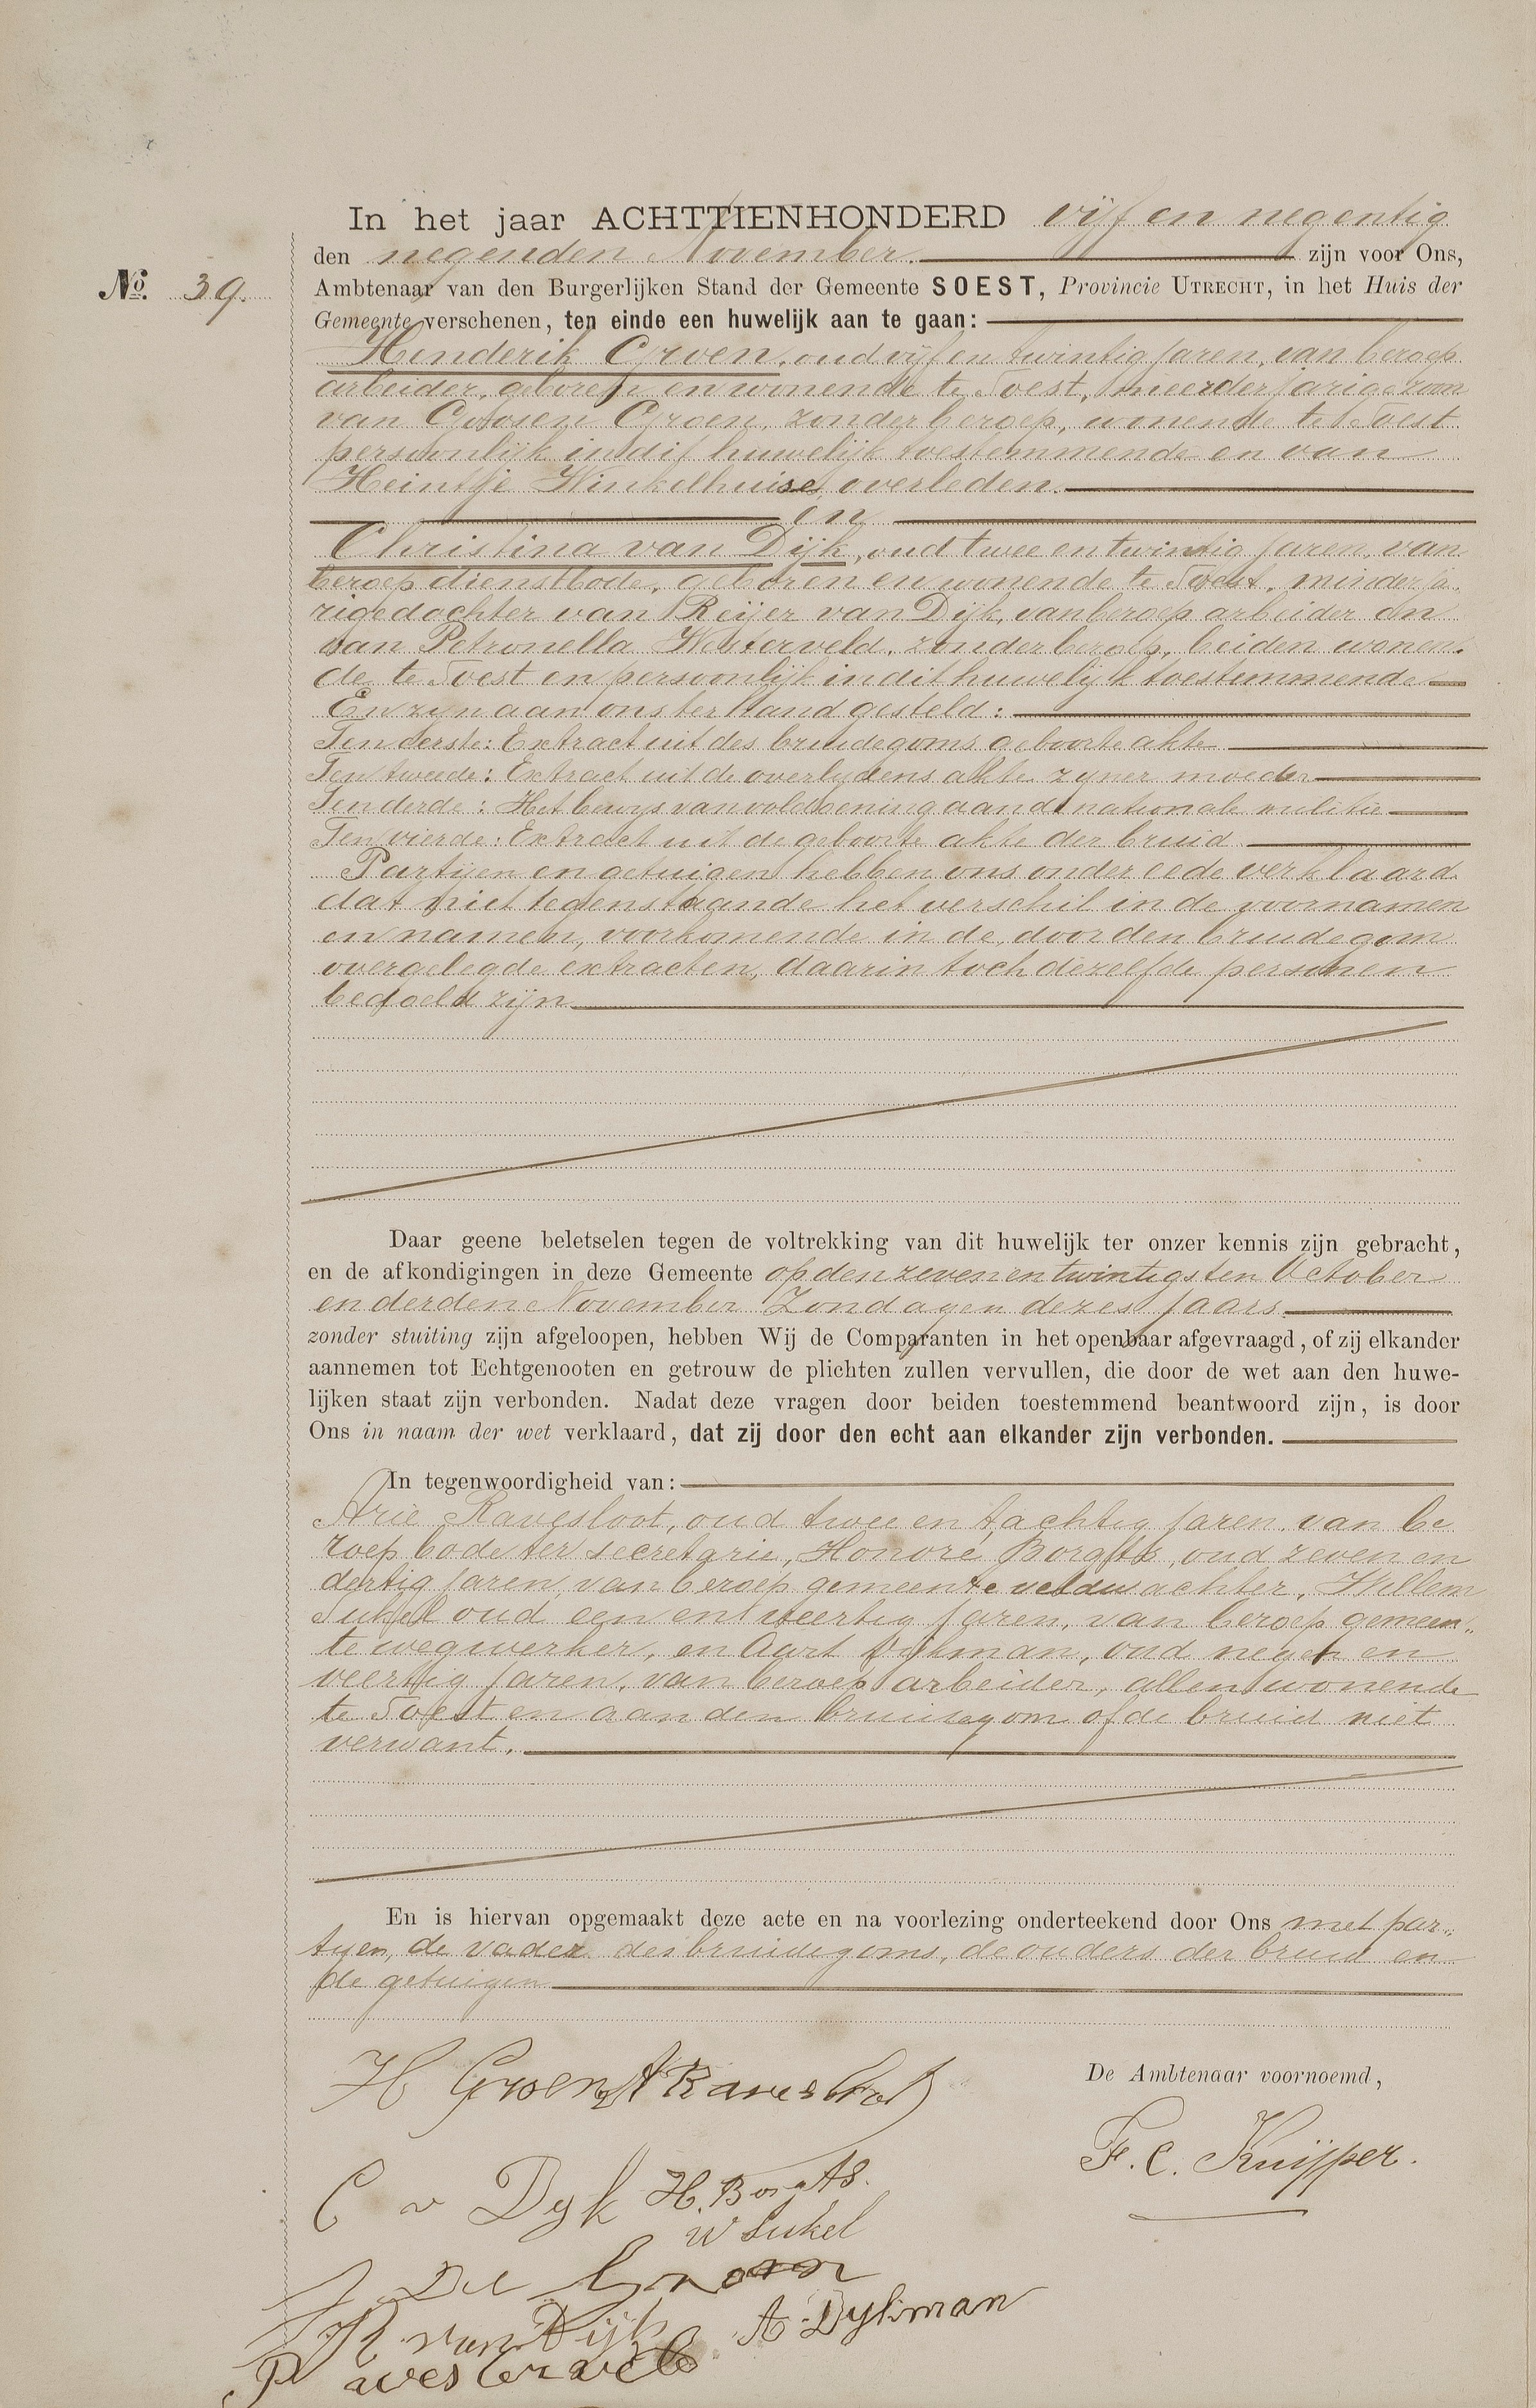 In het jaar ACHTTIENHONDERD vijf en negentig
den negenden November. zijn voor Ons,
No. 39. Ambtenaar van den Burgerlijken Stand der Gemeente SOEST, Provincie UTRECHT, in het Huis der
Gemeente verschenen, ten einde een huwelijk aan te gaan:
Henderik Groen, oud vijf en twintig jaren, van beroep
arbeider, geboren en wonende te Soest, meerderjarige zoon
van Goosen Groen, zonder beroep, wonende te Soest
persoonlijk in dit huwelijk toestemmende en van
Heintje Winkelhuise, overleden.
en
Christina van Dijk, oud twee en twintig jaren, van
beroep dienstbode, geboren en wonende te Soest, minderja
rige dochter van Reijer van Dijk, van beroep arbeider en
van Petronella Westerveld, zonder beroep, beiden wonen„
de te Soest en persoonlijk in dit huwelijk toestemmende
En zijn aan ons ter hand gesteld:
Ten eerste: Extract uit des bruidegoms geboorte akte
Ten tweede: Extract uit de overlydens akte zyner moeder
Ten derde: Het bewys van voldoening aan de nationale militie
Ten vierde: Extract uit de geboorte akte der bruid
Partijen en getuigen hebben ons onder eede verklaard
dat niettegenstaande het verschil in de voornamen
en namen, voorkomende in de, door den bruidegom
overgelegde extracten, daarin toch dezelfde personen
bedoeld zijn
Daar geene beletselen tegen de voltrekking van dit huwelijk ter onzer kennis zijn gebracht,
en de afkondigingen in deze Gemeente op den zeven en twintigsten October
en derden November Zondagen dezes jaars
zonder stuiting zijn afgeloopen, hebben Wij de Comparanten in het openbaar afgevraagd, of zij elkander
aannemen tot Echtgenooten en getrouw de plichten zullen vervullen, die door de wet aan den huwe-
lijken staat zijn verbonden. Nadat deze vragen door beiden toestemmend beantwoord zijn, is door
Ons in naam der wet verklaard, dat zij door den echt aan elkander zijn verbonden.
In tegenwoordigheid van:
Arie Ravesloot, oud twee en tachtig jaren, van be
roep bode ter secretarie, Honoré Borghs, oud zeven en
dertig jaren, van beroep gemeente veldwachter, Willem
Sukel oud een en veertig jaren, van beroep gemeen„
te wegwerker, en Aart Dijkman, oud negen en
veertig jaren, van beroep arbeider, allen wonende
te Soest en aan den bruidegom of de bruid niet
verwant.
En is hiervan opgemaakt deze acte en na voorlezing onderteekend door Ons met par„
tyen, de vader des bruidegoms, de ouders der bruid en
de getuigen
H Groen A Ravesloot
De Ambtenaar voornoemd,
F. C. Kuijper.
C v Dyk H. Borghs.
W Sukel
Groen
R van Dijk A Dykman
P